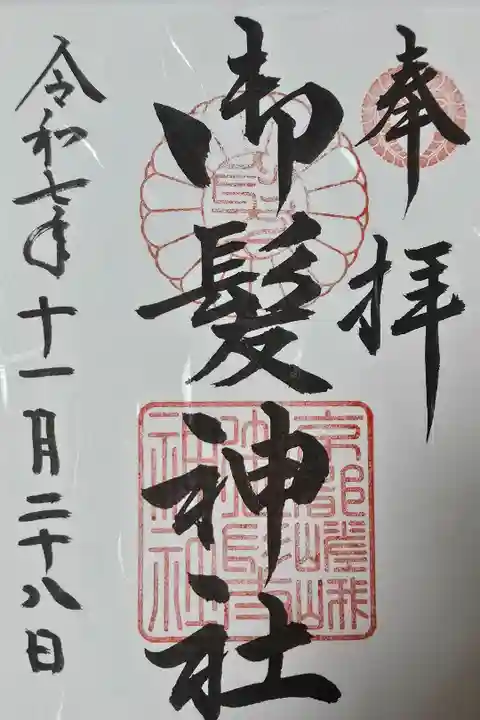 奉拝
御髪神社
令和七年十一月二十八日
京都嵯峨
神社